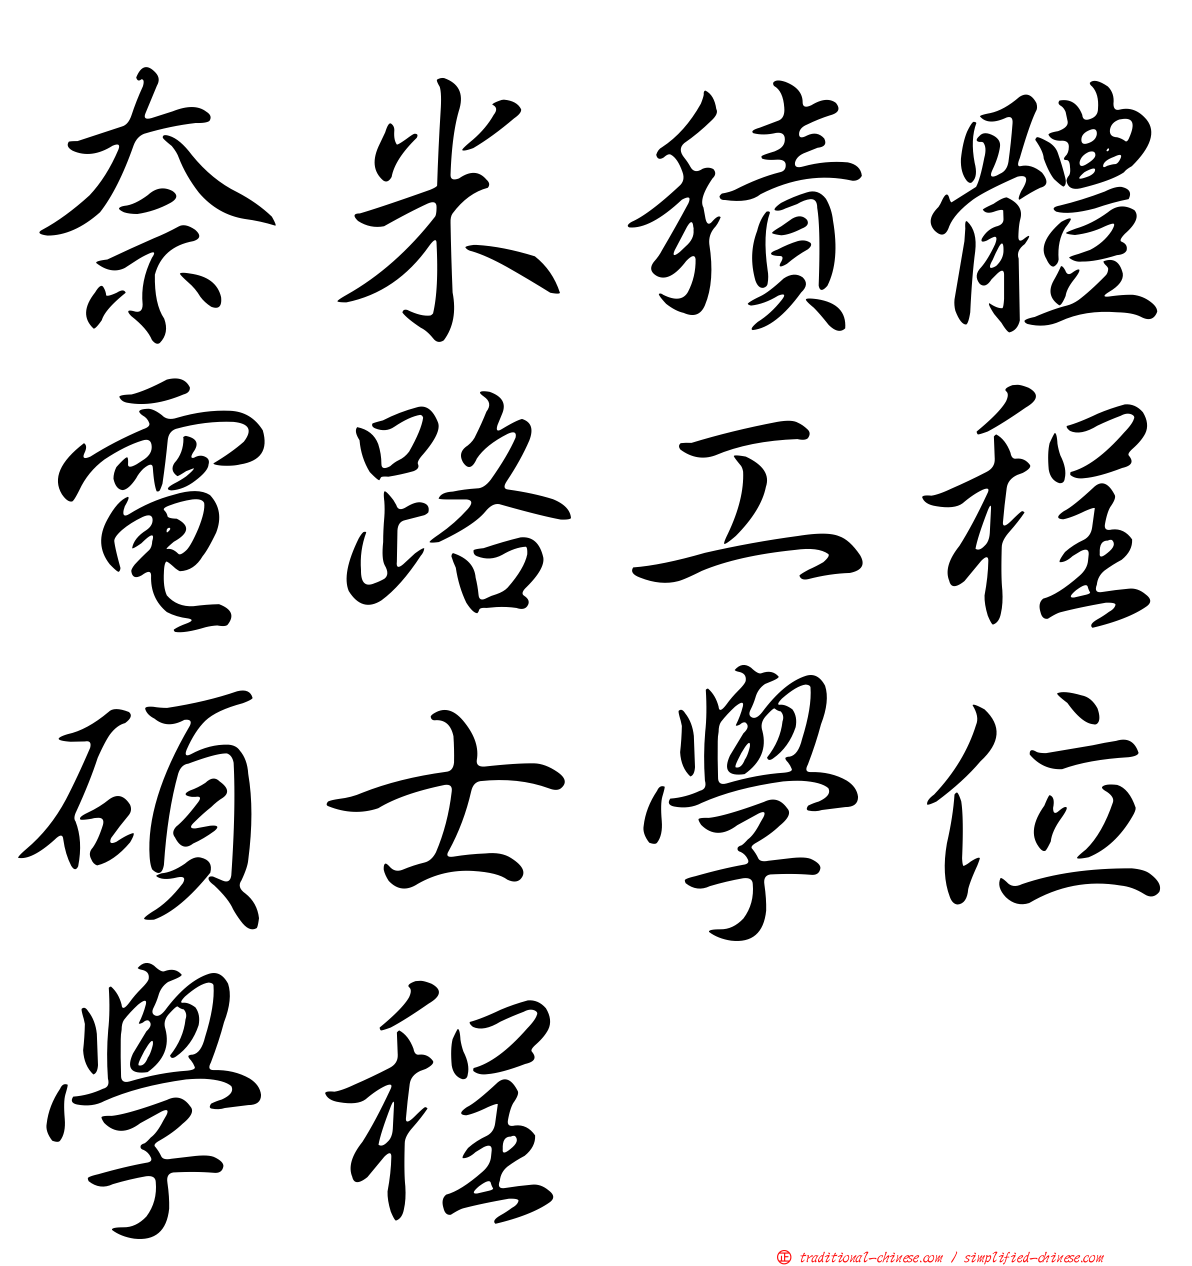 奈米積體
電路工程
碩士學位
學程
正 traditional-chinese.com / simplified-chinese.com